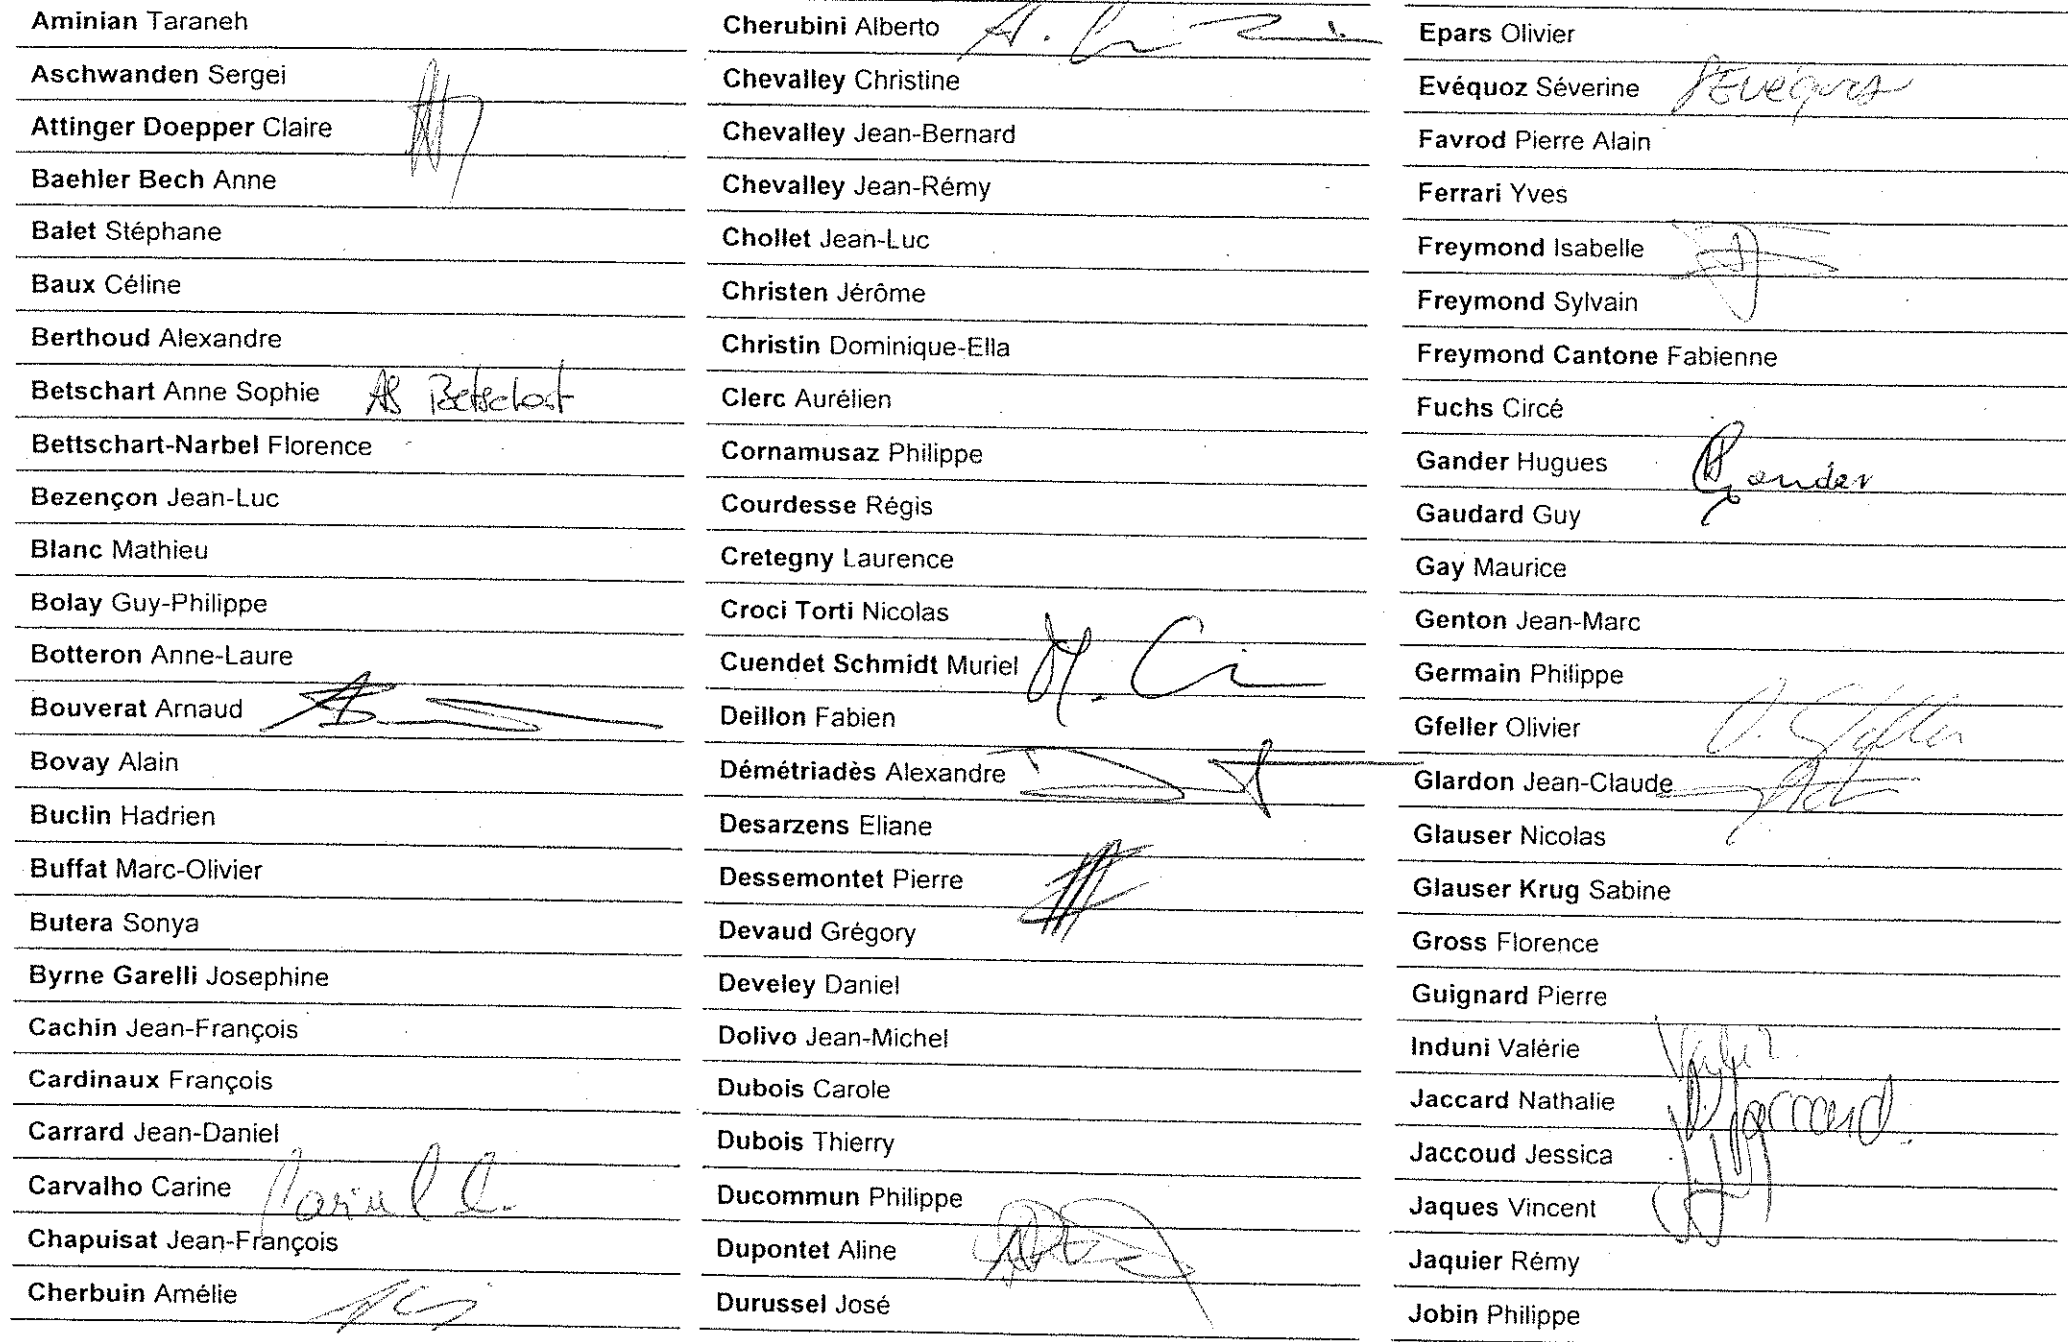 Aminian Taraneh
Aschwanden Sergei
Attinger Doepper Claire
Baehler Bech Anne
Balet Stéphane
Baux Céline
Berthoud Alexandre
Betschart Anne Sophie AS Betschart
Bettschart-Narbel Florence
Bezençon Jean-Luc
Blanc Mathieu
Bolay Guy-Philippe
Botteron Anne-Laure
Bouverat Arnaud
Bovay Alain
Buclin Hadrien
Buffat Marc-Olivier
Butera Sonya
Byrne Garelli Josephine
Cachin Jean-François
Cardinaux François
Carrard Jean-Daniel
Carvalho Carine
Chapuisat Jean-François
Cherbuin Amélie
Cherubini Alberto
Chevalley Christine
Chevalley Jean-Bernard
Chevalley Jean-Rémy
Chollet Jean-Luc
Christen Jérôme
Christin Dominique-Ella
Clerc Aurélien
Cornamusaz Philippe
Courdesse Régis
Cretegny Laurence
Croci Torti Nicolas
Cuendet Schmidt Muriel
Deillon Fabien
Démétriadès Alexandre
Desarzens Eliane
Dessemontet Pierre
Devaud Grégory
Develey Daniel
Dolivo Jean-Michel
Dubois Carole
Dubois Thierry
Ducommun Philippe
Dupontet Aline
Durussel José
Epars Olivier
Evéquoz Séverine SEvéquoz
Favrod Pierre Alain
Ferrari Yves
Freymond Isabelle
Freymond Sylvain
Freymond Cantone Fabienne
Fuchs Circé
Gander Hugues Gander
Gaudard Guy
Gay Maurice
Genton Jean-Marc
Germain Philippe
Gfeller Olivier O. Gfeller
Glardon Jean-Claude
Glauser Nicolas
Glauser Krug Sabine
Gross Florence
Guignard Pierre
Induni Valérie
Jaccard Nathalie N. Jaccard
Jaccoud Jessica
Jaques Vincent
Jaquier Rémy
Jobin Philippe